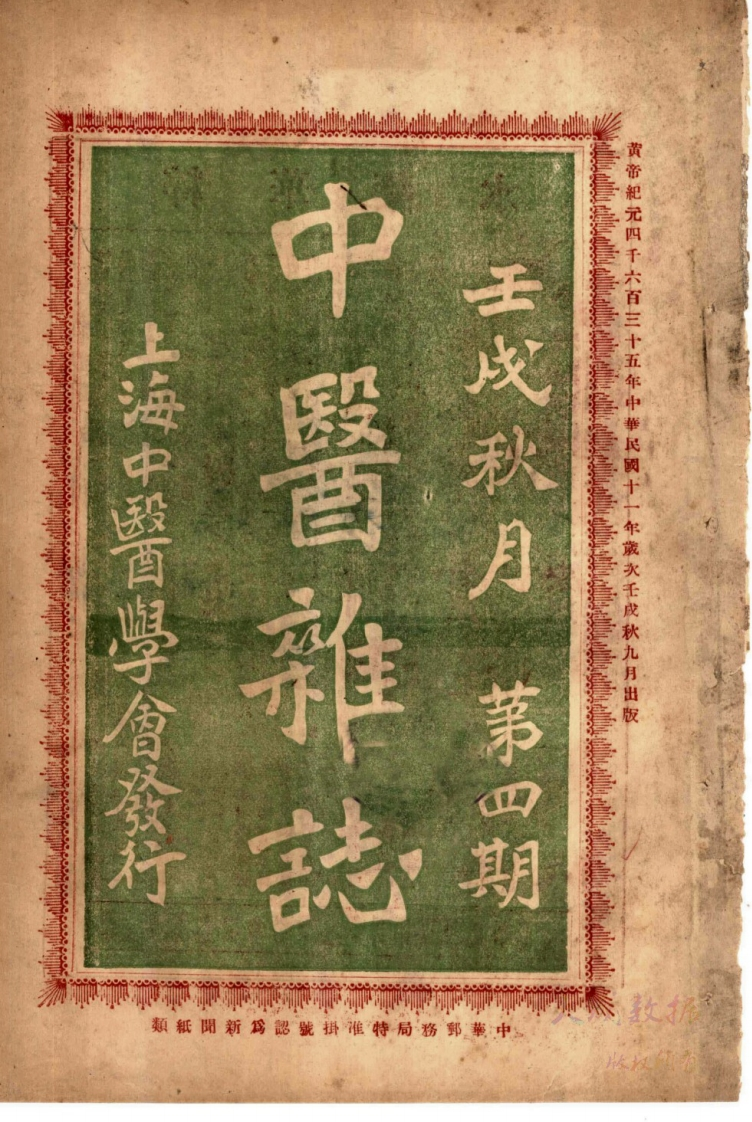 黃帝紀元四千六百三十五年中華民國十一年歲次壬戌秋九月出版
壬戌秋月 第四期
中醫雜誌
上海中醫學會發行
中華郵務局特准掛號認爲新聞紙類